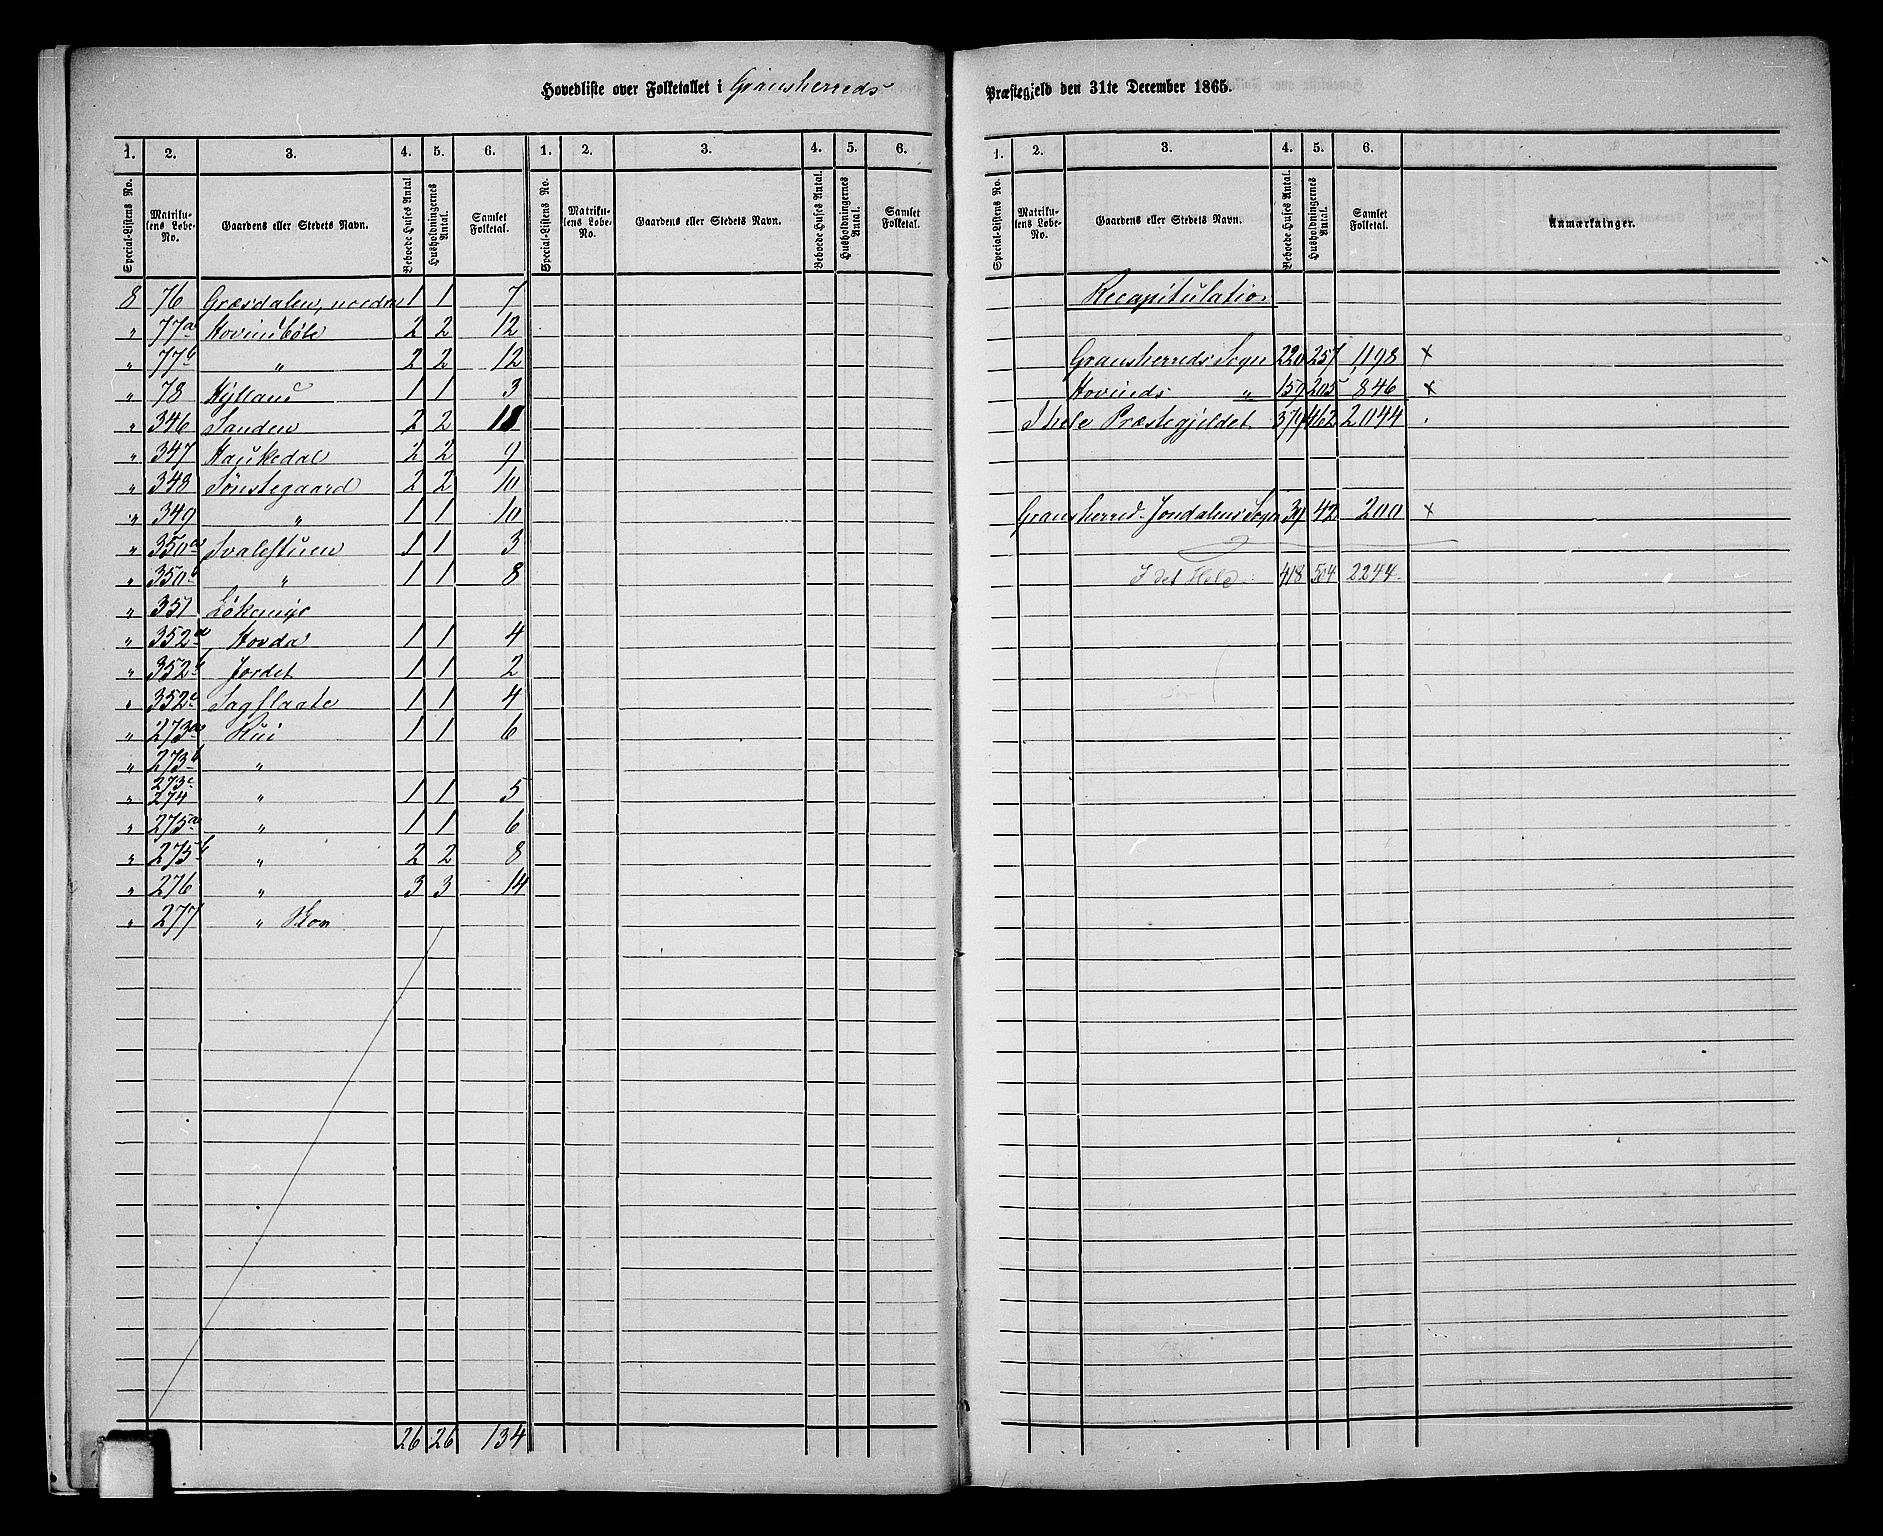 Hovedliste over Folketallet i Gransherreds
1. 2. 3. 4. 5. 6. 1. 2. 3. 4. 5. 6.
Special-Listens No. Matrikulens Løbe-No. Gaardens eller Stedets Navn. Beboede Huses Antal. Husholdningernes Antal. Samlet Folketal. Special-Listens No. Matrikulens Løbe-No. Gaardens eller Stedets Navn. Beboede Huses Antal. Husholdningernes Antal. Samlet Folketal.
8 76 Græsdalen, nordre 1 1 7
" 77a Hovinbøle 2 2 12
" 77b " 2 2 12
" 78 Hylland 1 1 3
" 346 Sanden 2 2 11
" 347 Haukedal 2 2 9
" 348 Sønstegaard 2 2 10
" 349 " 1 1 10
" 350a Svalestuen 1 1 3
" 350b " 1 1 8
" 351 Løkemyr
" 352a Hovda 1 1 4
" 352b Jordet 1 1 2
" 352c Sagflaate 1 1 4
" 273a Rui 1 1 6
" 273b "
273c
" 274 " 1 1 5
" 275a " 1 1 6
" 275b " 2 2 8
" 276 " 3 3 14
" 277 " Skov
26 26 134
Præstegjeld den 31te December 1865.
1. 2. 3. 4. 5. 6.
Special-Listens No. Matrikulens Løbe-No. Gaardens eller Stedets Navn. Beboede Huses Antal. Husholdningernes Antal. Samlet Folketal. Anmærkninger.
Recapitulation
Gransherreds Sogn 220 257 1,198 x
Hovinds " 159 205 846 x
I hele Præstegjeldet 379 462 2044
Gransherred-Jondalens Sogn 39 42 200 x
I det Hele: 418 504 2244.